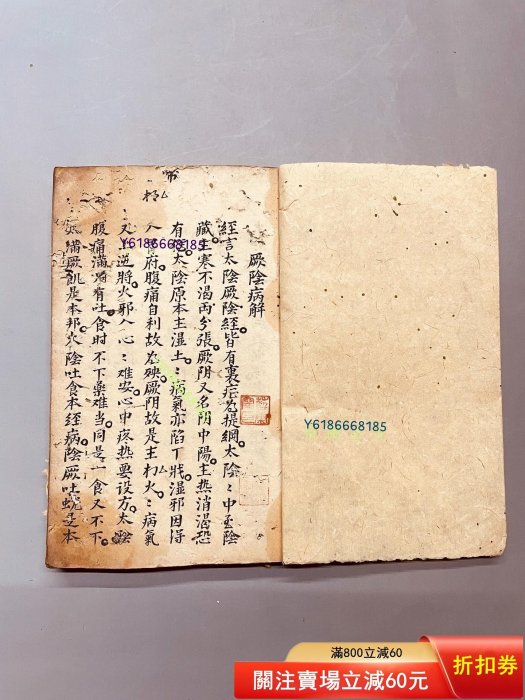 厥陰病解
經言太陰厥陰經皆有裏症為提綱太陰〻中至陰
藏主寒不渴兩分張厥阴又名阴中陽主热消渴恐
有 太陰原本主湿土〻病氣亦陷丁戕湿邪因得
入 府腹痛自利故为殃厥阴故是主 火〻病氣
又 逆將火邪入心〻难安心中疼热要设方太
腹痛满 有吐食时不下藥难当同是一食又不下
 满厥飢是本邦 陰吐食本經病陰厥吐蚘是本
Y6186668185
Y6186668185
滿800立減60
關注賣場立減60元
折扣券